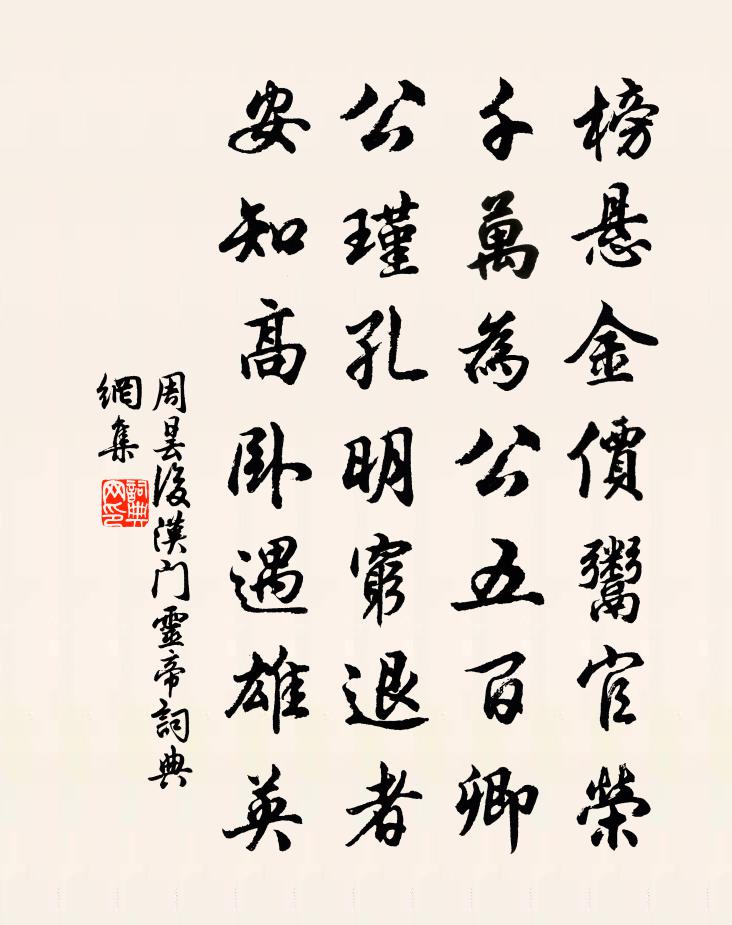 榜悬金價鬻官榮
千萬為公五百卿
公瑾孔明窮退者
安知高卧遇雄英
周昙後漢门靈帝詞典
網集
詞典
网印